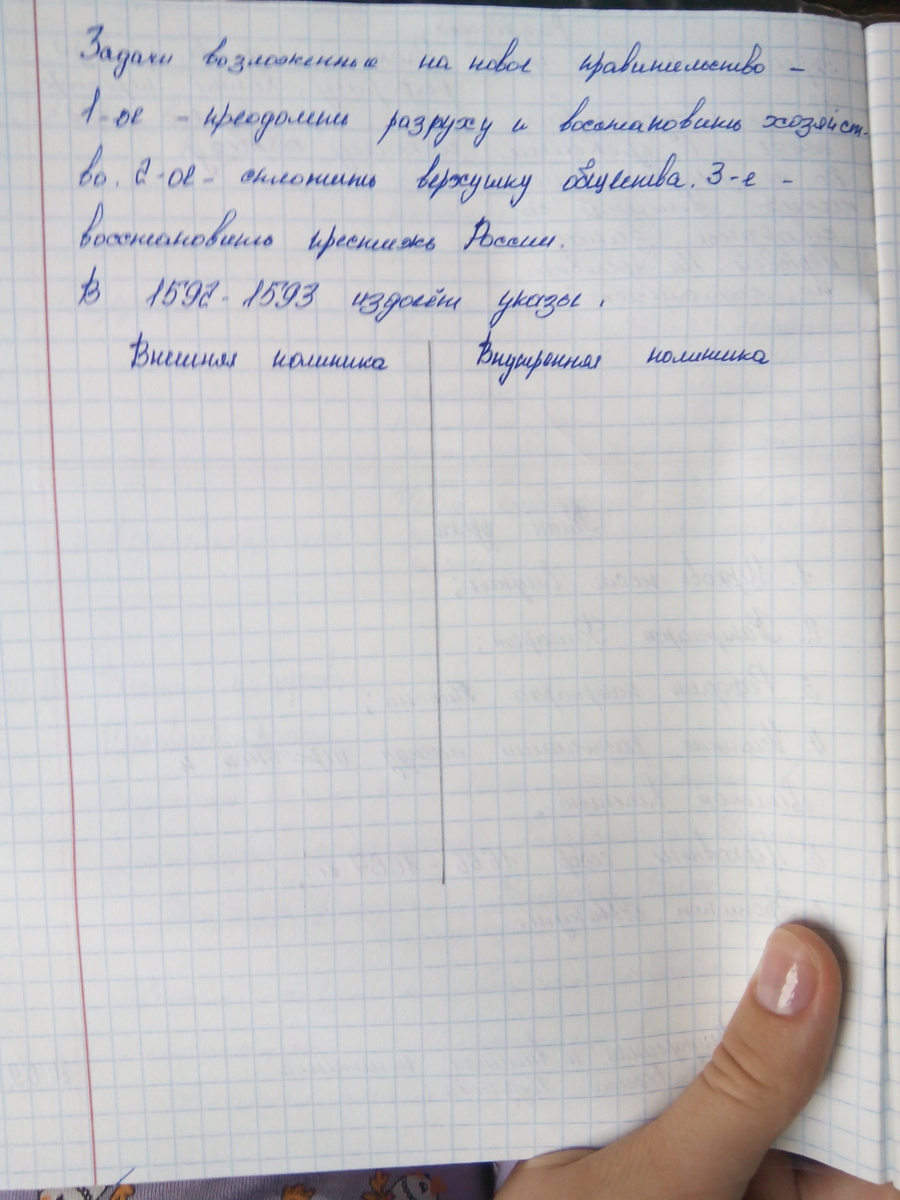 Задачи возложенные на новое правительство -
1-ое - преодолеть разруху и восстановить хозяйст-
во. 2-ое - сплотить верхушку общества. 3-е -
восстановить престижь России.
В 1592-1593 издаёт указы.
Внешняя политика Внутренняя политика